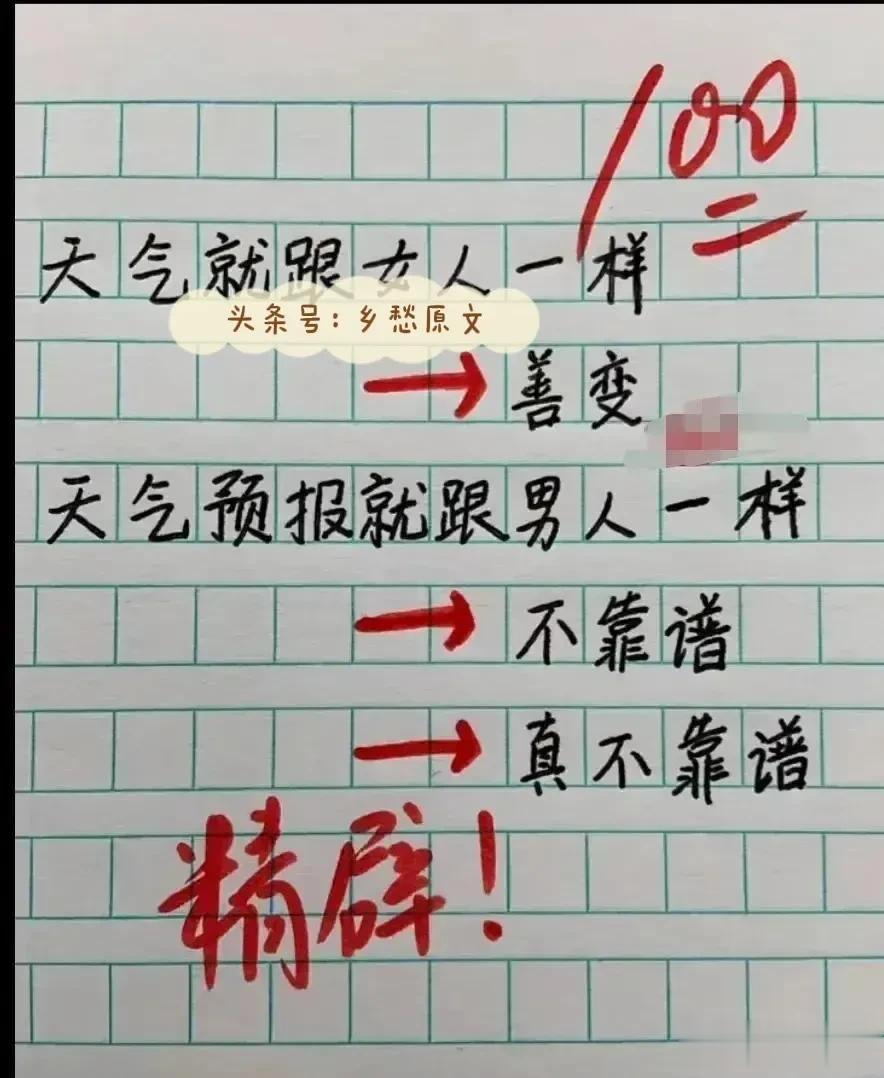 100
天气就跟女人一样
头条号:乡愁原文
→善变
天气预报就跟男人一样
→不靠谱
→真不靠谱
精辟!